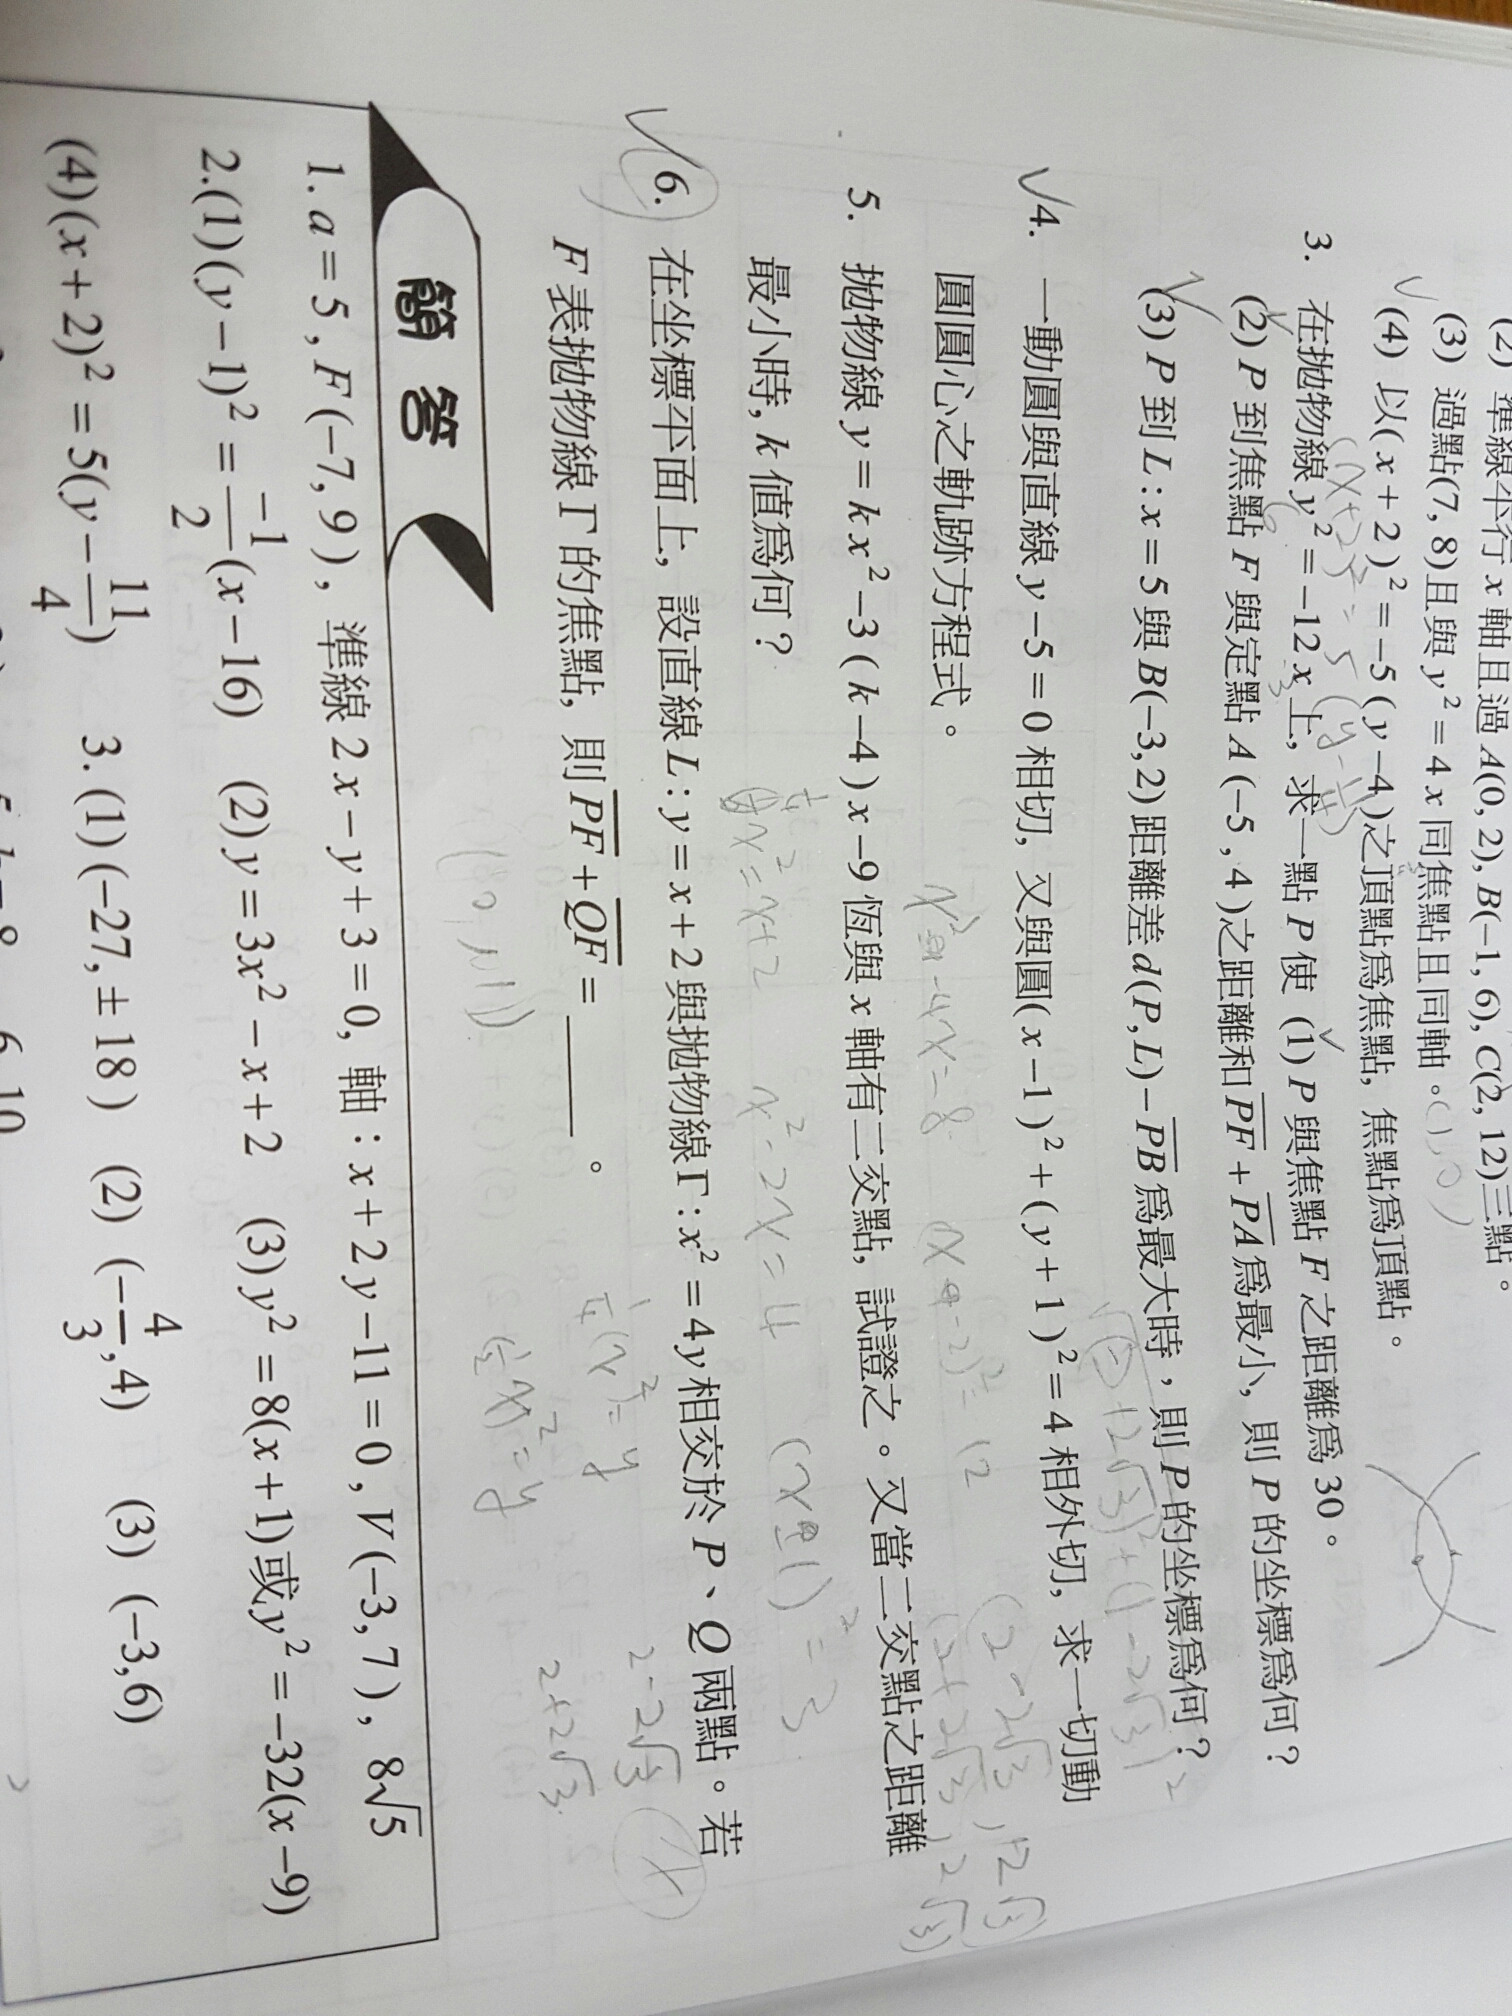 (2) 準線平行 x 軸且過 A(0, 2), B(−1, 6), C(2, 12)三點。
(3) 過點(7, 8)且與 y² = 4x 同焦點且同軸。(1,0)
(4) 以(x+2)² = −5(y−4)之頂點爲焦點, 焦點爲頂點。
3. 在拋物線 y² = −12x 上, 求一點 P 使 (1) P 與焦點 F 之距離爲 30。
(2) P 到焦點 F 與定點 A(−5, 4)之距離和 PF + PA 爲最小, 則 P 的坐標爲何?
(3) P 到 L : x = 5 與 B(−3, 2) 距離差 d(P, L) − PB 爲最大時, 則 P 的坐標爲何?
4. 一動圓與直線 y − 5 = 0 相切, 又與圓(x−1)² + (y+1)² = 4 相外切, 求一切動
圓圓心之軌跡方程式。
5. 拋物線 y = kx² − 3(k−4)x − 9 恆與 x 軸有二交點, 試證之。又當二交點之距離
最小時, k 值爲何?
6. 在坐標平面上, 設直線 L : y = x + 2 與拋物線 Γ : x² = 4y 相交於 P、Q 兩點。若
F 表拋物線 Γ 的焦點, 則 PF + QF = ______ 。
x²−2x=4
2−2√3
2+2√3
簡答
1. a = 5, F(−7, 9), 準線 2x − y + 3 = 0, 軸 : x + 2y − 11 = 0, V(−3, 7), 8√5
2.(1)(y−1)² = −1/2 (x−16) (2) y = 3x² − x + 2 (3) y² = 8(x+1)或y² = −32(x−9)
(4)(x+2)² = 5(y − 11/4) 3.(1)(−27, ±18) (2) (−4/3, 4) (3) (−3, 6)